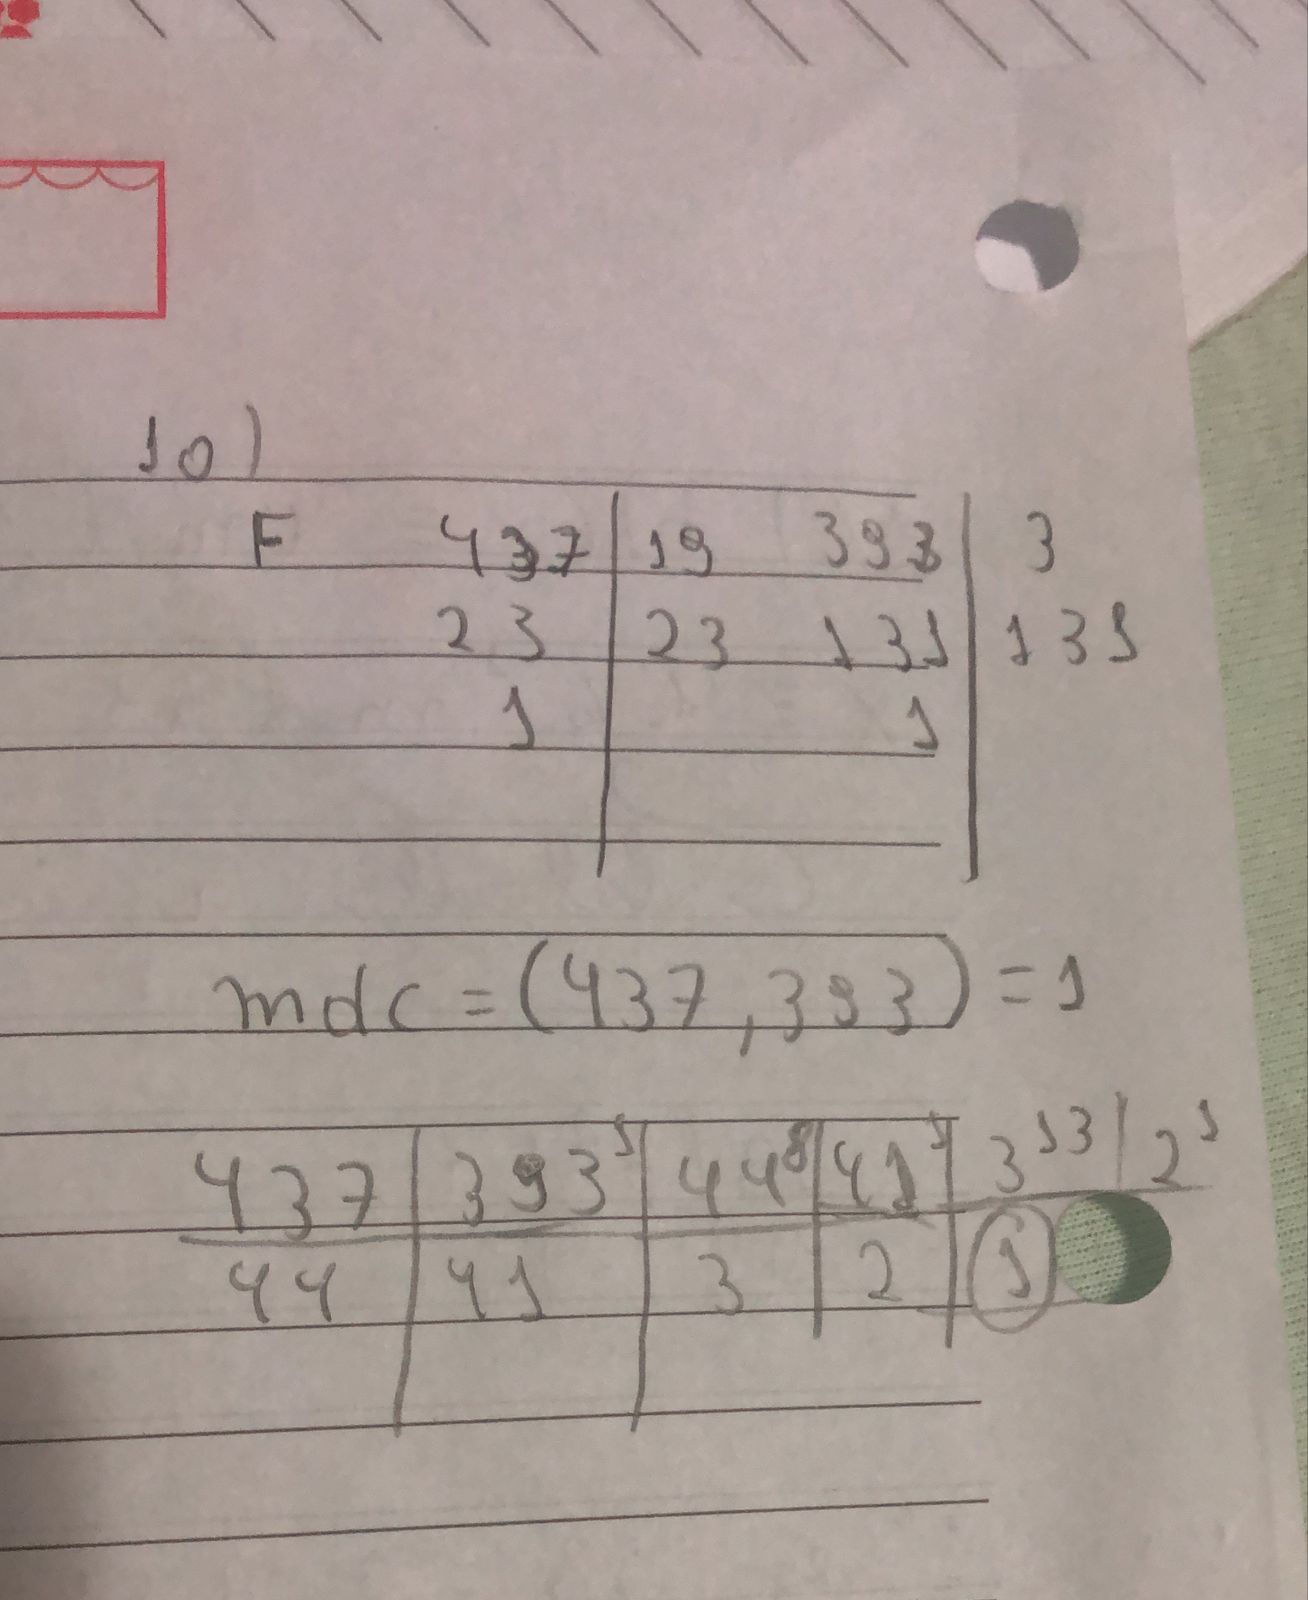 10)
F 437 | 19 393 | 3
23 | 23 131 | 131
1 1
mdc = (437, 393) = 1
437 | 393¹ | 44⁸ | 41¹ | 3¹³ | 2¹
44 | 41 | 3 | 2 | 1